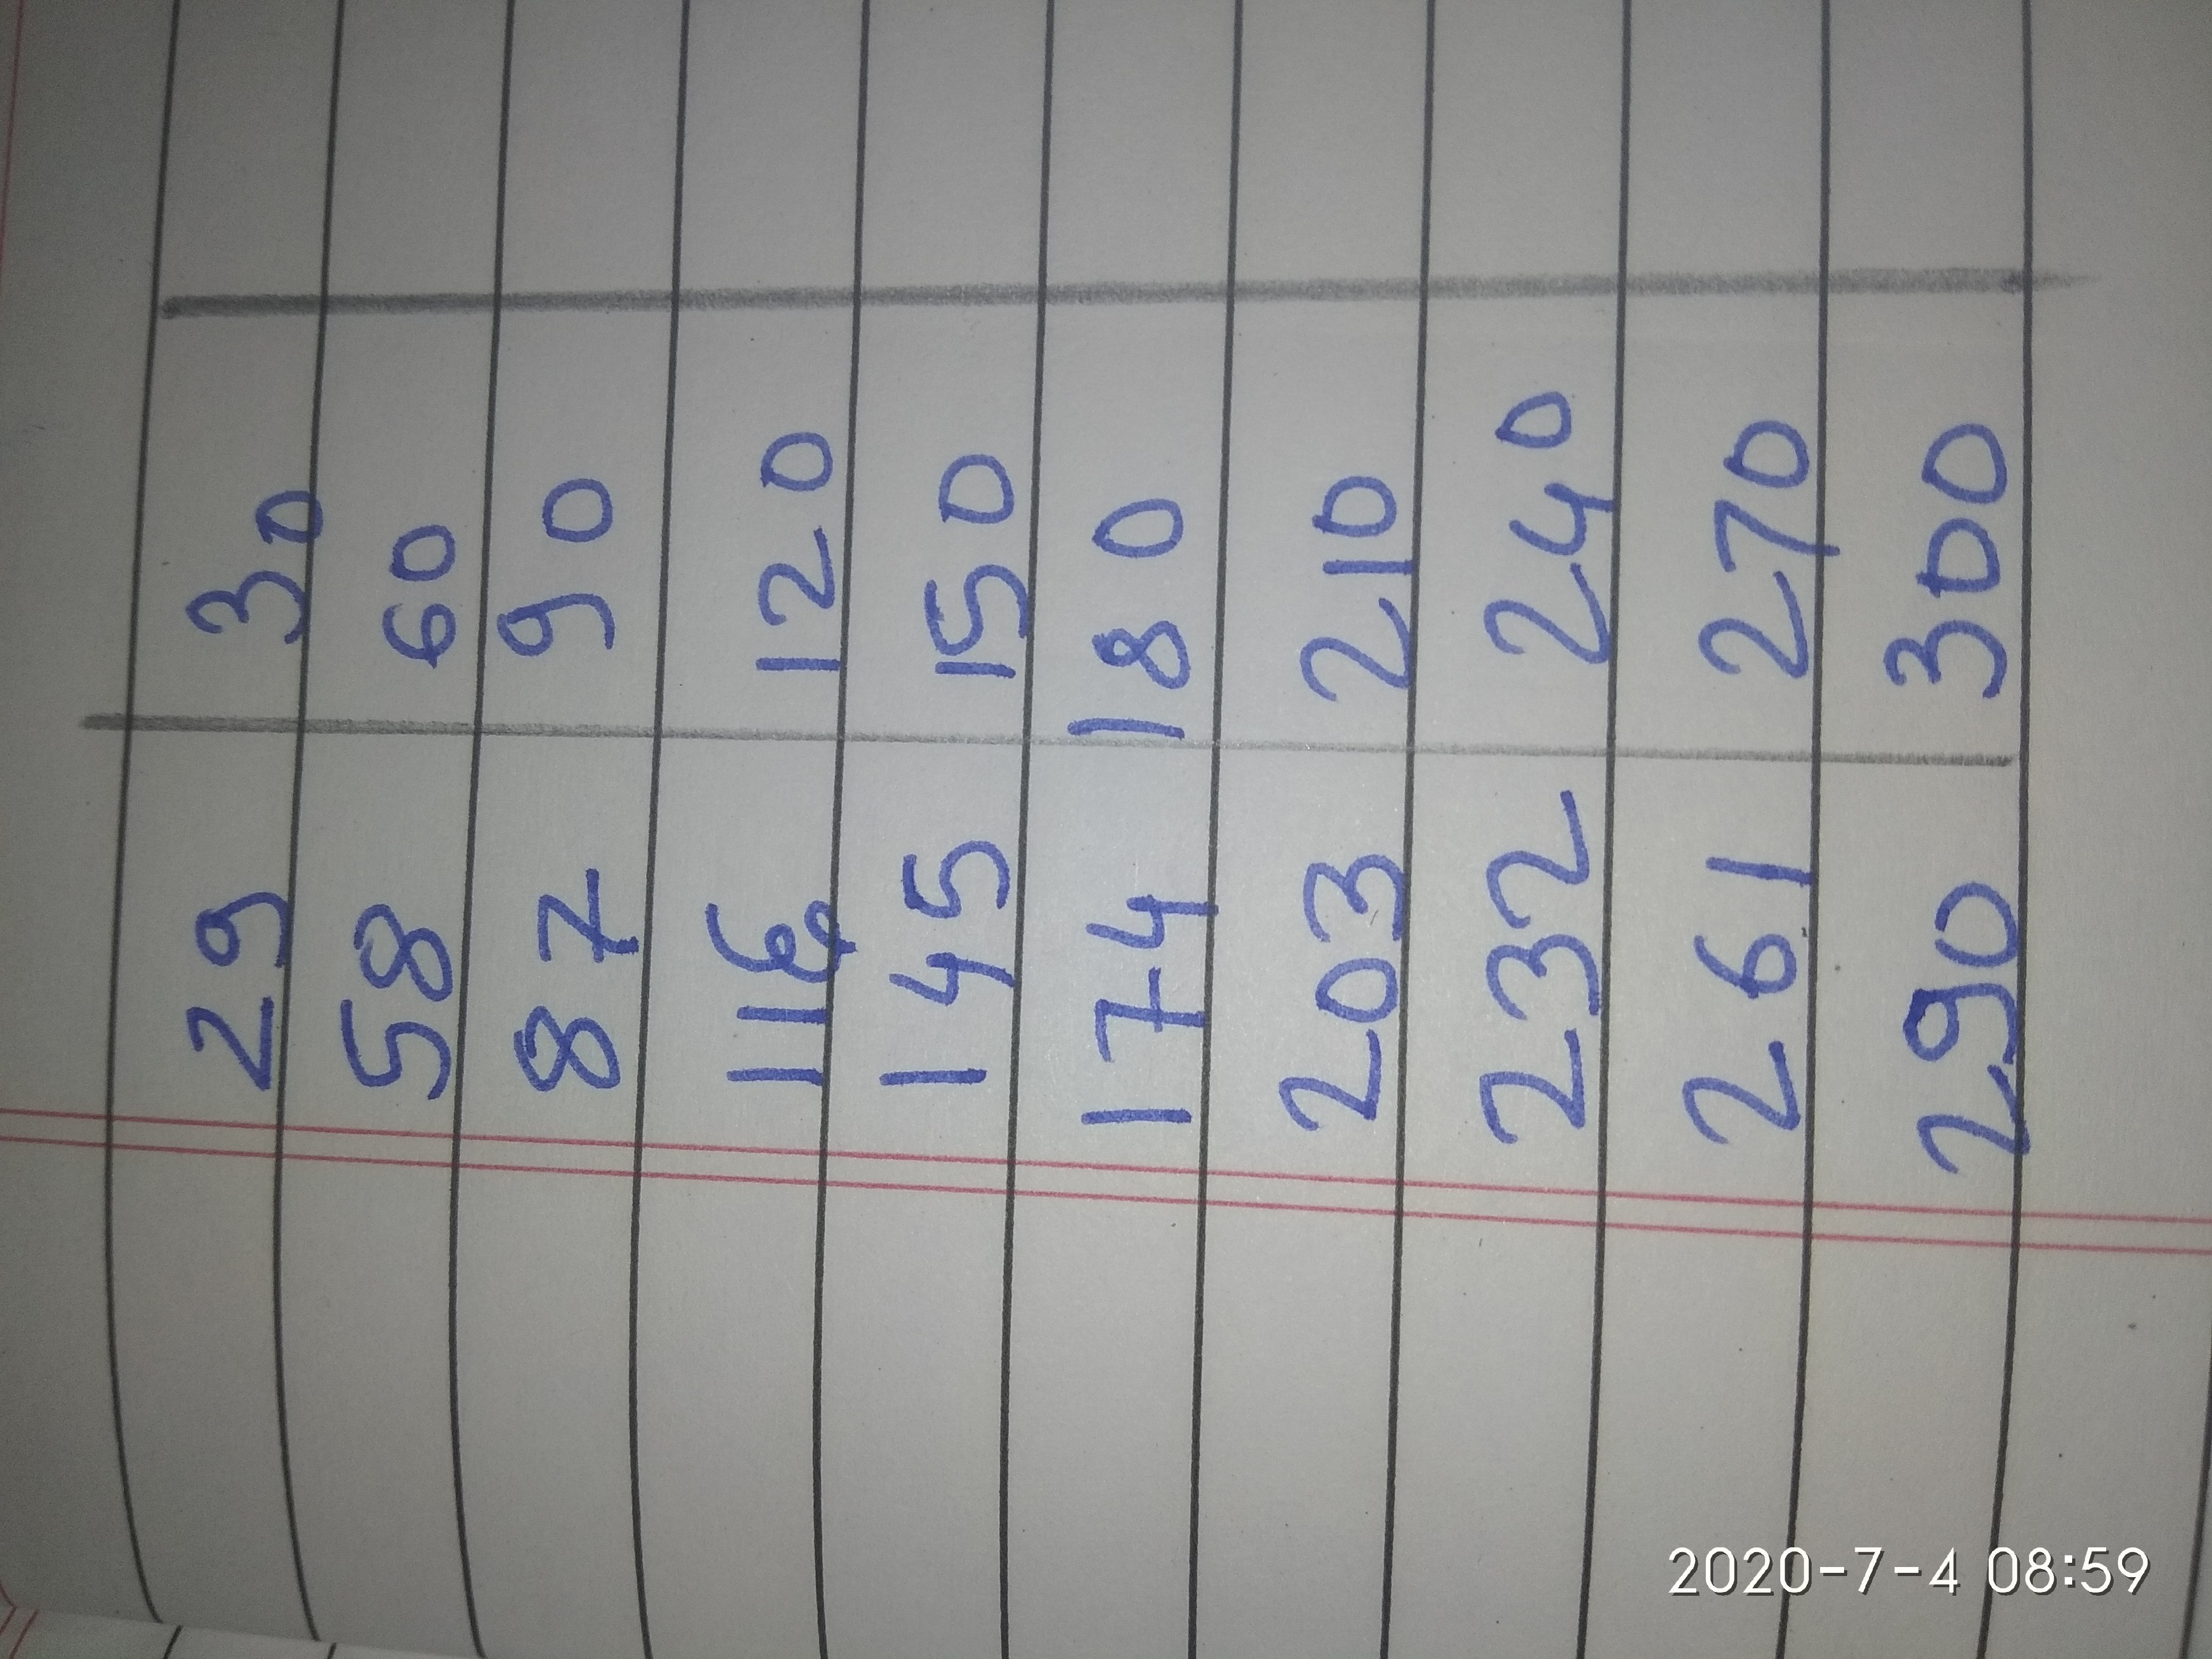 29 30
58 60
87 90
116 120
145 150
174 180
203 210
232 240
261 270
290 300
2020-7-4 08:59